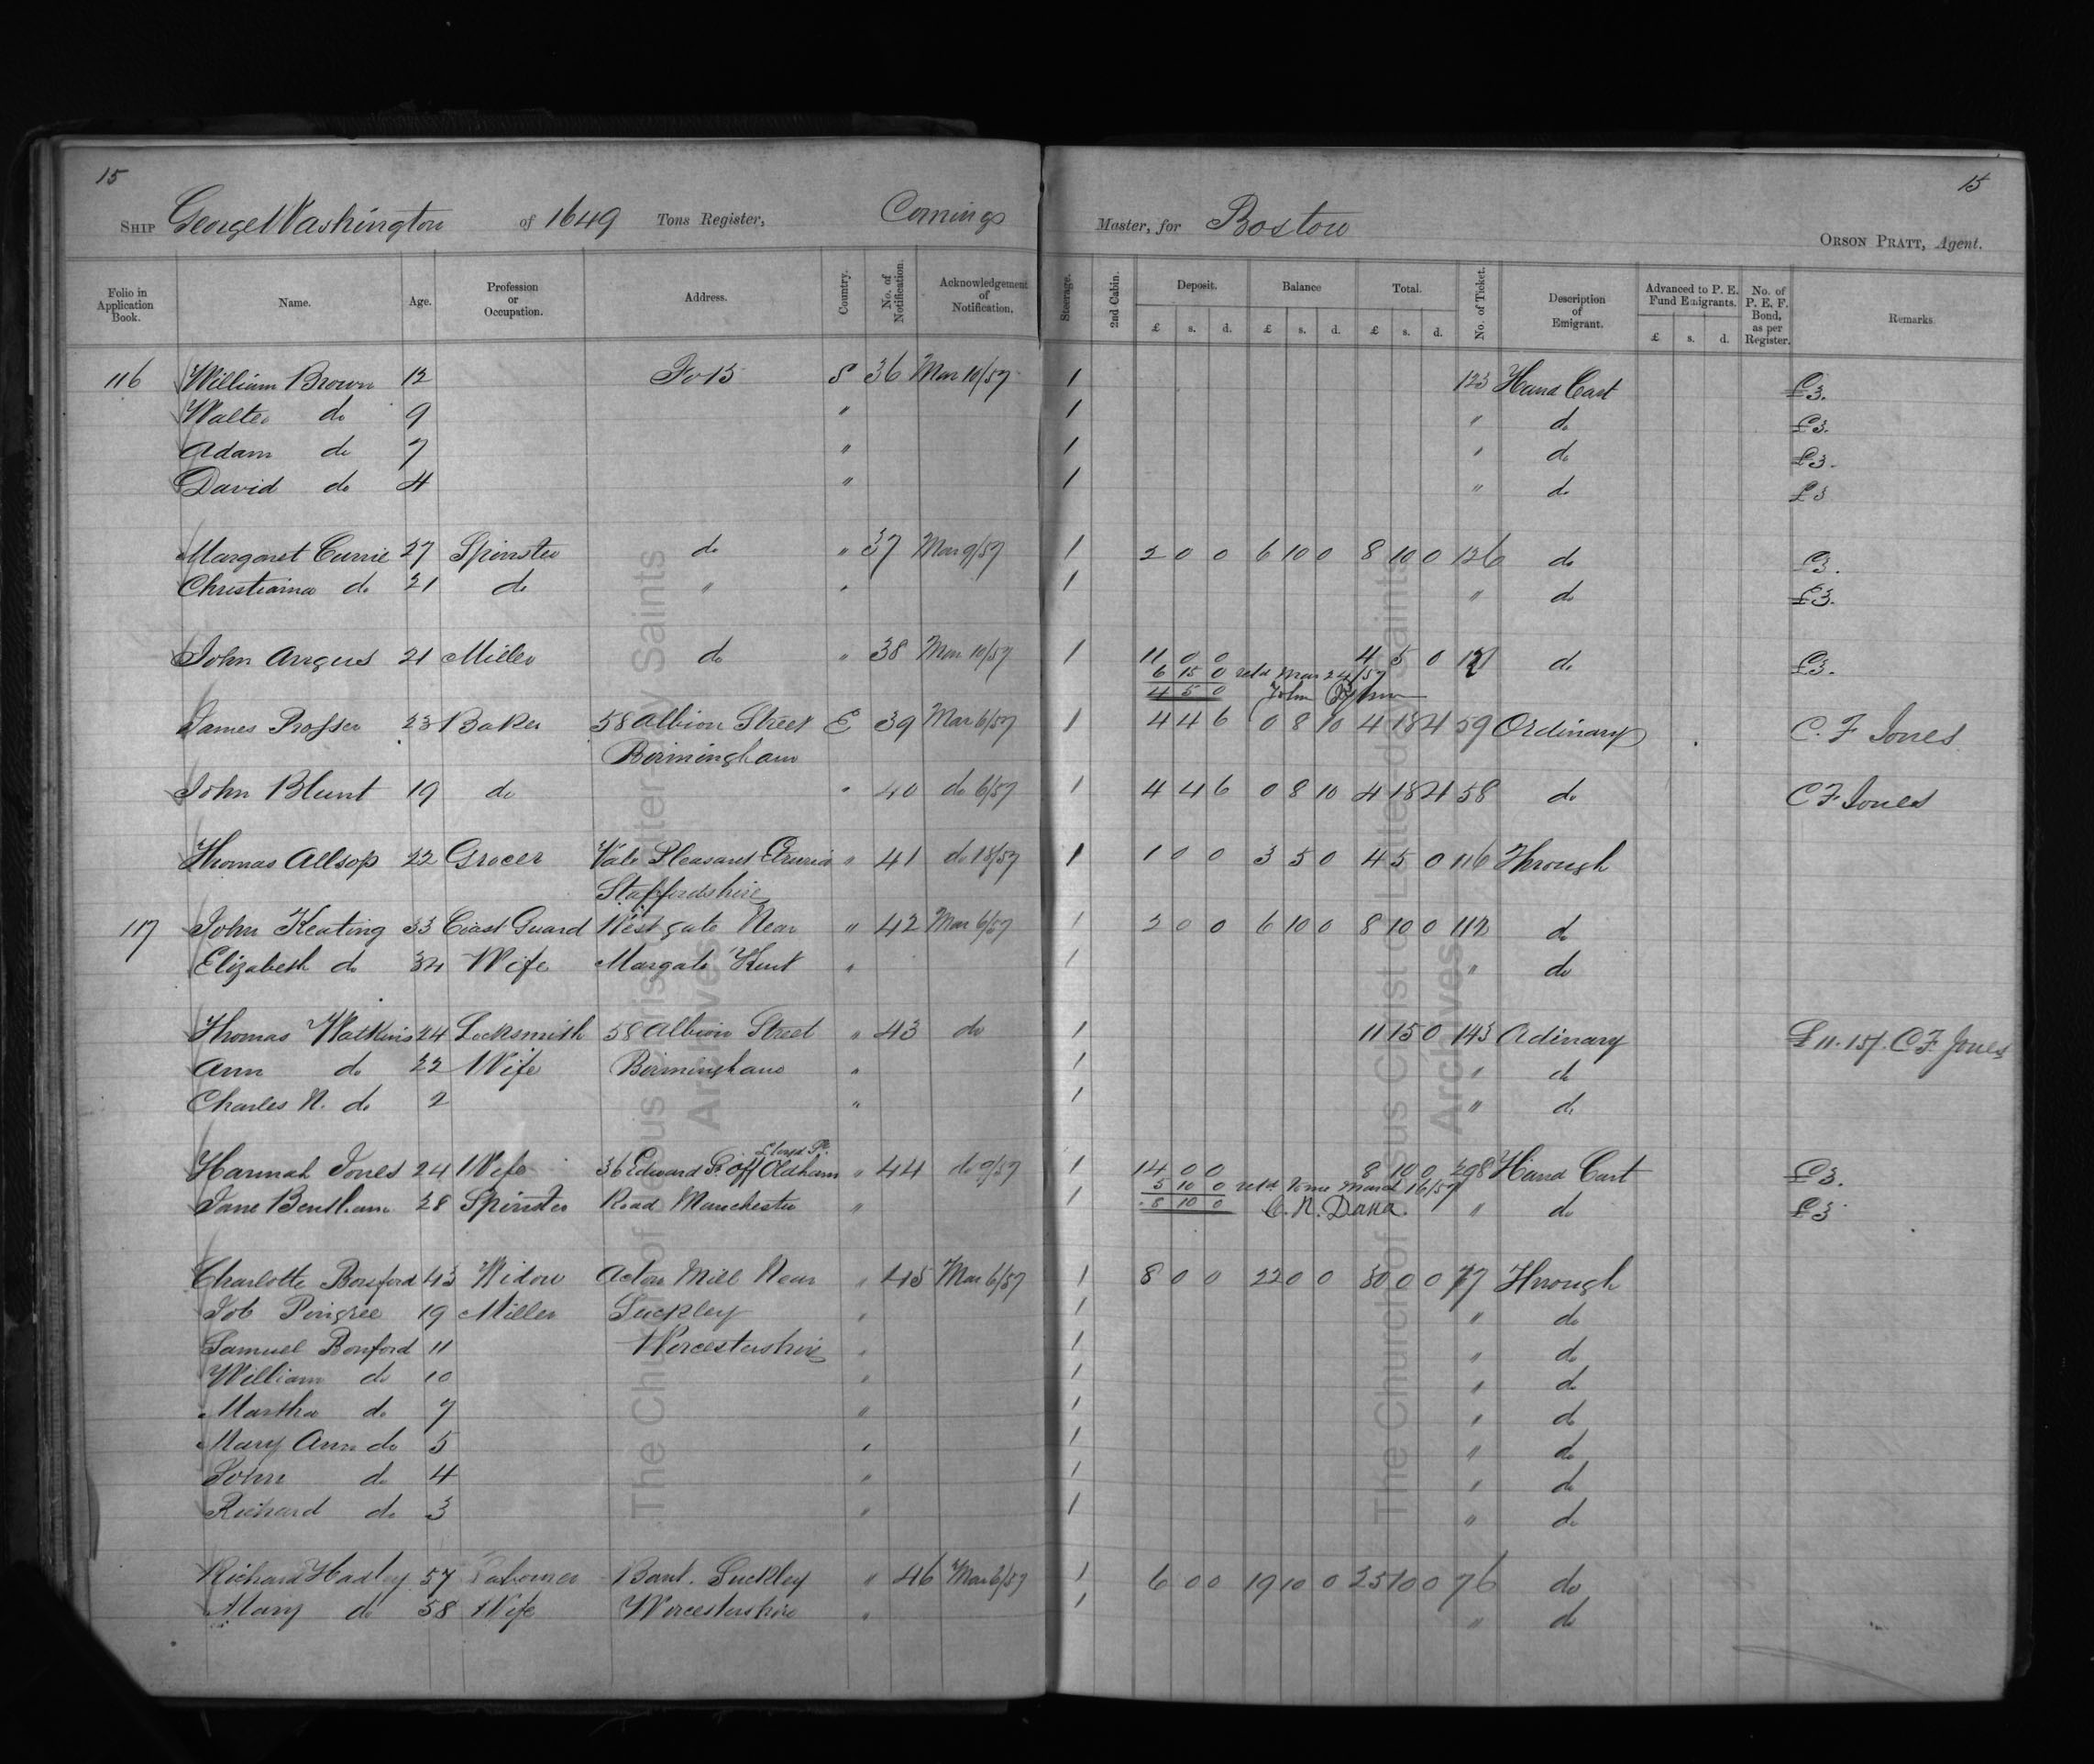 15 15
SHIP George Washington of 1649 Tons Register, Comings Master, for Boston ORSON PRATT, Agent.
Folio in Application Book. Name. Age. Profession or Occupation. Address. Country. No. of Notification. Acknowledgement of Notification. Steerage. 2nd Cabin. Deposit. Balance Total. No. of Ticket. Description of Emigrant. Advanced to P. E. Fund Emigrants. No. of P. E. F. Bond, as per Register. Remarks
£ s. d. £ s. d. £ s. d. £ s. d.
116 William Brown 12 Fo 15 S 36 Mar 10/57 1 123 Hand Cart £3.
Walter do 9 " 1 " do £3.
Adam do 7 " 1 " do £3.
David do 4 " 1 " do £3
Margaret Currie 27 Spinster do " 37 Mar 9/57 1 2 0 0 6 10 0 8 10 0 126 do £3.
Christiana do 21 do " " 1 " do £3.
John Angus 21 Miller do " 38 Mar 10/57 1 11 0 0 4 5 0 do £3.
6 15 0 retd Mar 24/57
4 5 0 John
James Prosser 23 Baker 58 Albion Street E 39 Mar 6/57 1 4 4 6 0 8 10 4 18 4 59 Ordinary C. F Jones
Birmingham
John Blunt 19 do " 40 do 6/57 1 4 4 6 0 8 10 4 18 4 58 do C F Jones
Thomas Allsop 22 Grocer Vale Pleasant Etruria " 41 do 18/57 1 1 0 0 3 5 0 4 5 0 116 Through
Staffordshire
117 John Keating 33 Coast Guard Westgate Near " 42 Mar 6/57 1 2 0 0 6 10 0 8 10 0 112 do
Elizabeth do 34 Wife Margate Kent " 1 " do
Thomas Watkins 24 Locksmith 58 Albion Street " 43 do 1 11 15 0 143 Ordinary £11.15/. C F Jones
Ann do 22 Wife Birmingham " 1 " do
Charles N. do 2 " 1 " do
Lloyd St.
Hannah Jones 24 Wife 36 Edward St. off Oldham " 44 do 9/57 1 14 0 0 8 10 0 298 Hand Cart £3.
5 10 0 retd to me March 16/57
Jane Bentham 28 Spinster Road Manchester " 1 8 10 0 C. R. Dana " do £3
Charlotte Bonsford 43 Widow Acton Mill Near " 45 Mar 6/57 1 8 0 0 22 0 0 30 0 0 77 Through
Job Pingree 19 Miller Suckley " 1 " do
Samuel Bonsford 11 Worcestershire " 1 " do
William do 10 " 1 " do
Martha do 7 " 1 " do
Mary Ann do 5 " 1 " do
John do 4 " 1 " do
Richard do 3 " 1 " do
Richard Hadley 57 Labourer Suckley " 46 Mar 6/57 1 6 0 0 19 10 0 25 10 0 76 do
Mary do 58 Wife Worcestershire " 1 " do
The Church of Jesus Christ of Latter-day Saints
Archives
The Church of Jesus Christ of Latter-day Saints
Archives